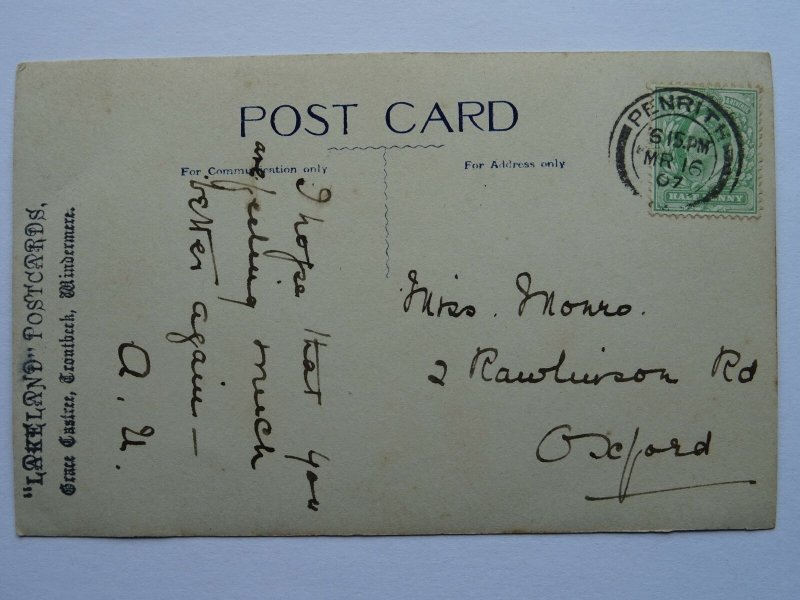 POST CARD
For Communication only
For Address only
PENRITH
6 15.PM
MR 16
07
HALFPENNY
I hope that you
are feeling much
better again—
A. U.
Miss. Monro.
2 Rawlinson Rd
Oxford
"LAKELAND" POSTCARDS,
Grace Castree, Troutbeck, Windermere.